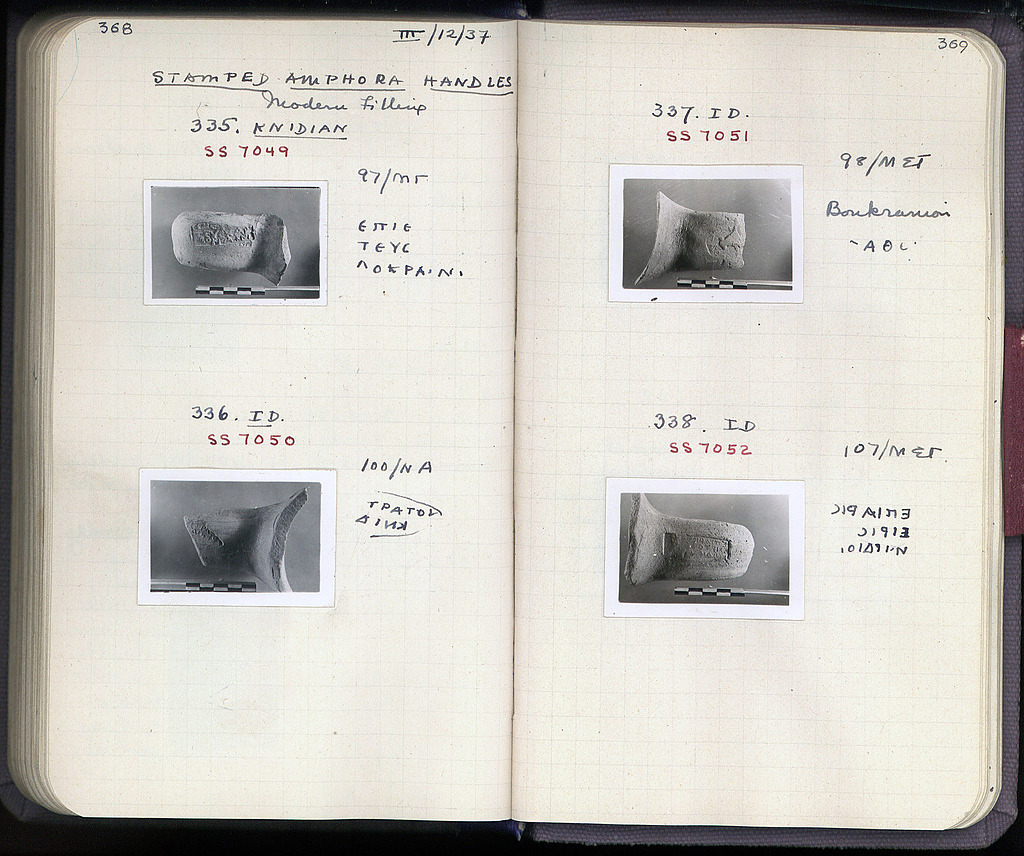 368
III/12/37
STAMPED AMPHORA HANDLES
Modern Filling
335. KNIDIAN
SS 7049
97/ΜΓ
ΕΠΙΕ
ΤΕΥϹ
336. ID.
SS 7050
100/ΝΑ
ΤΡΑΤΟΥ
369
337. ID.
SS 7051
98/ΜΕΤ
Boukranion
ΑΘϹ
338. ID
SS 7052
107/ΜΕΤ